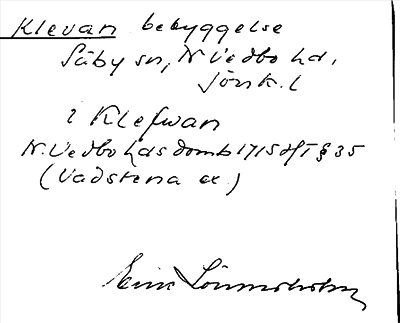 Klevan bebyggelse
Säby sn, N. Vedbo hd,
Jönk. l
i Klefwan
N. Vedbo hds domb 1715 ht § 35
(Vadstena ex.)